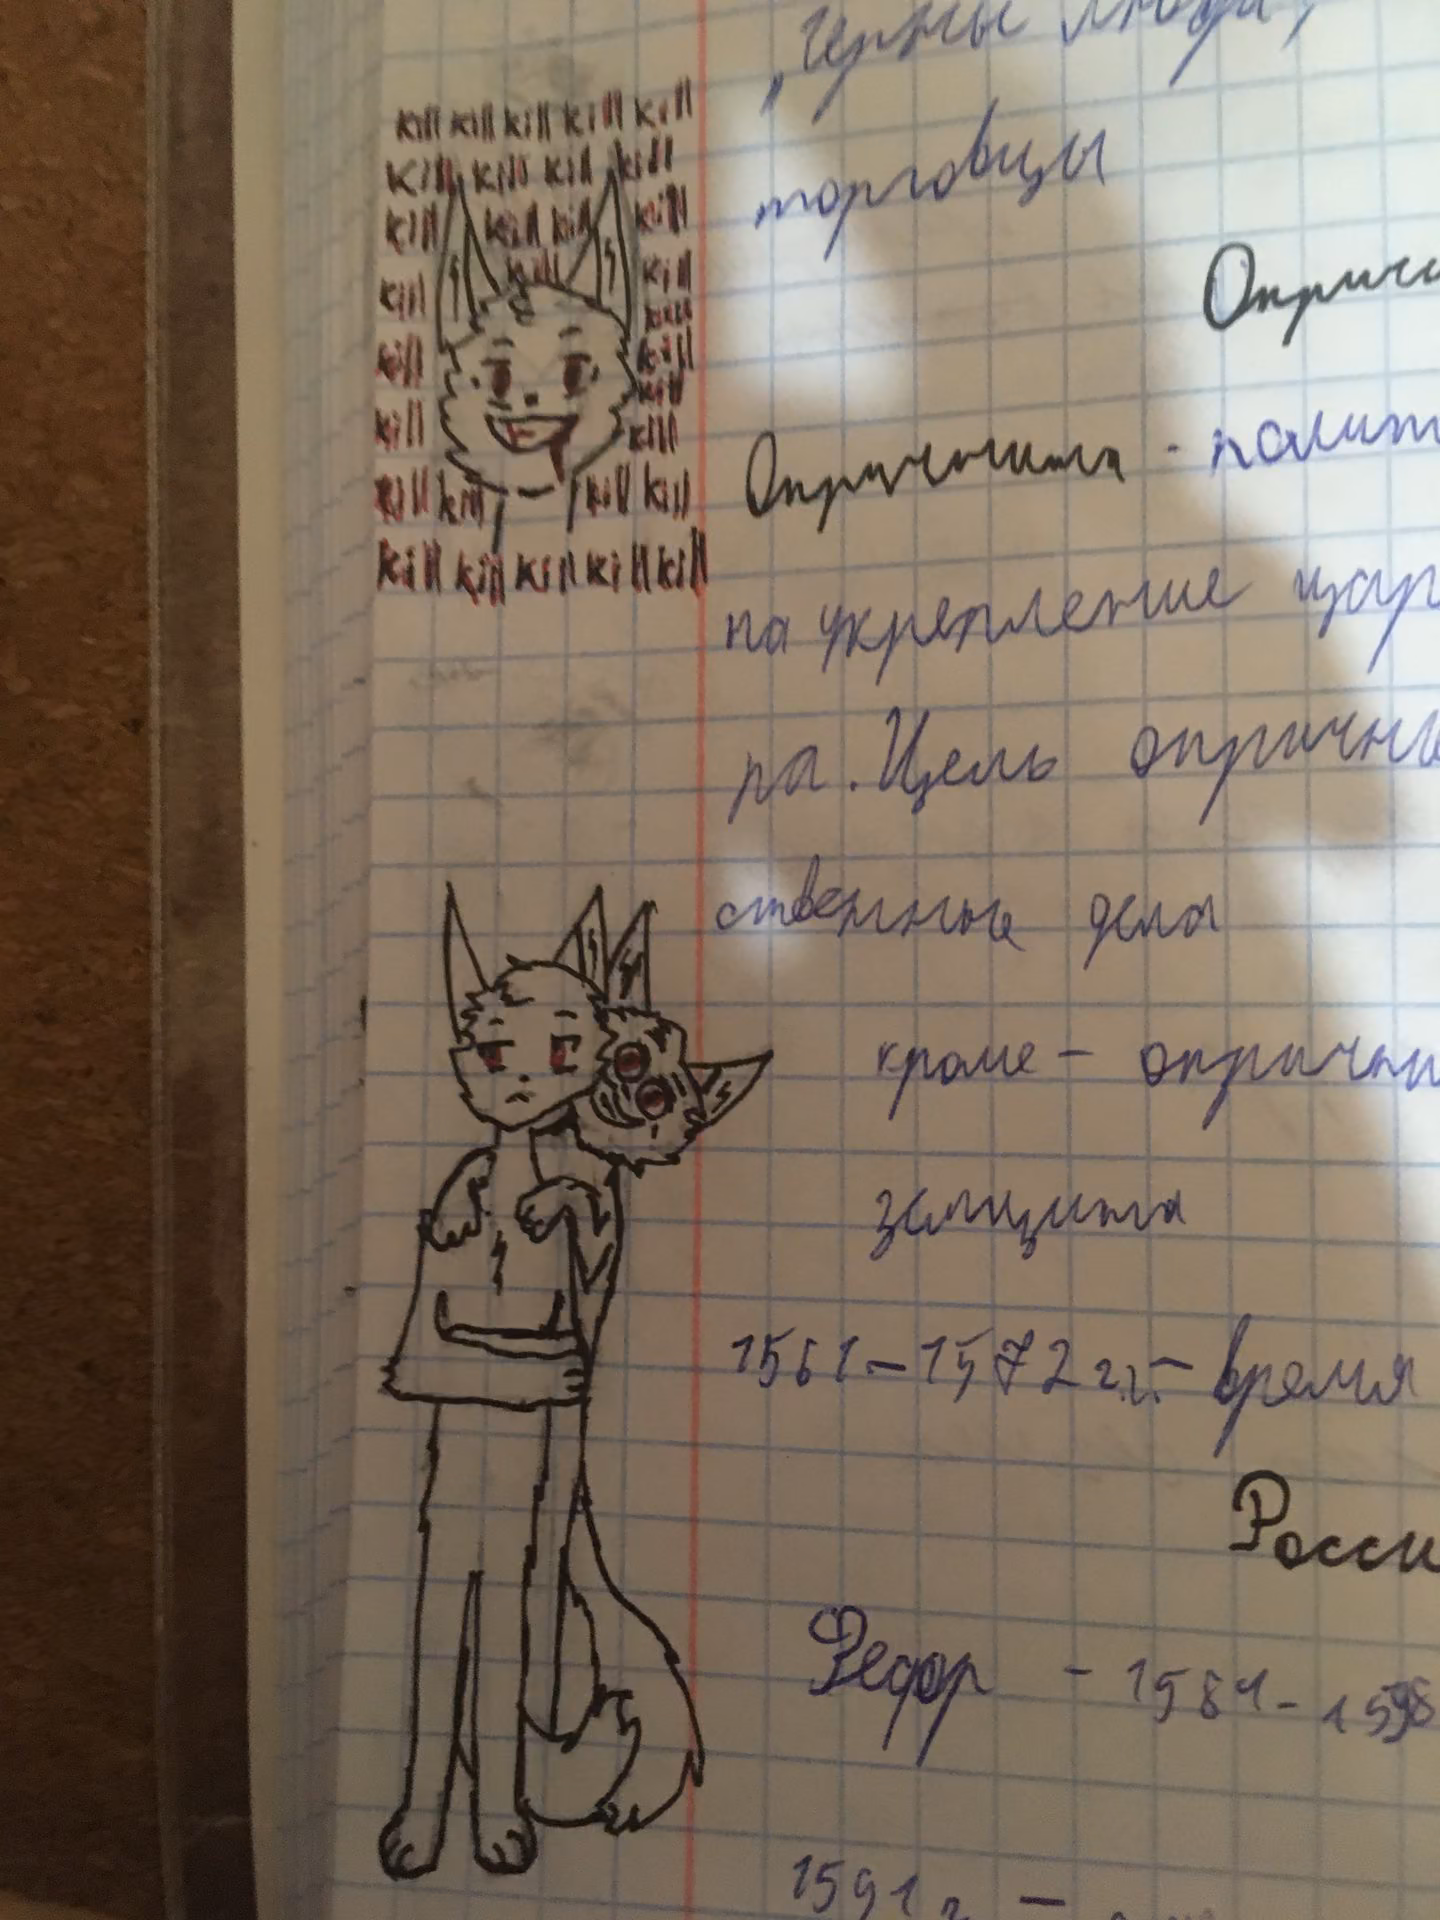 kill kill kill kill kill
kill kill kill kill
kill kill kill kill
kill kill kill
kill
kill kill
kill
kill kill
kill kill kill kill
kill kill kill kill kill
торговцы
Оприч
Опричнина - полит
на укрепление цар
ра. Цель опрични
ственные дела
кроме - опрични
земщина
1561-1572 гг.- время
Росси
Федор - 1584-1598
1591 г -